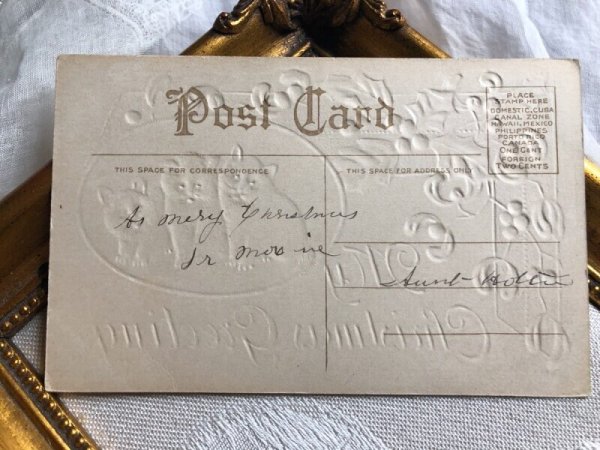 Post Card
PLACE
STAMP HERE
DOMESTIC, CUBA
CANAL ZONE
HAWAII, MEXICO
PHILIPPINES
PORTO RICO
CANADA
ONE CENT
FOREIGN
TWO CENTS
THIS SPACE FOR CORRESPONDENCE
THIS SPACE FOR ADDRESS ONLY
As mery Christmus
Aunt
Christmas Greeting